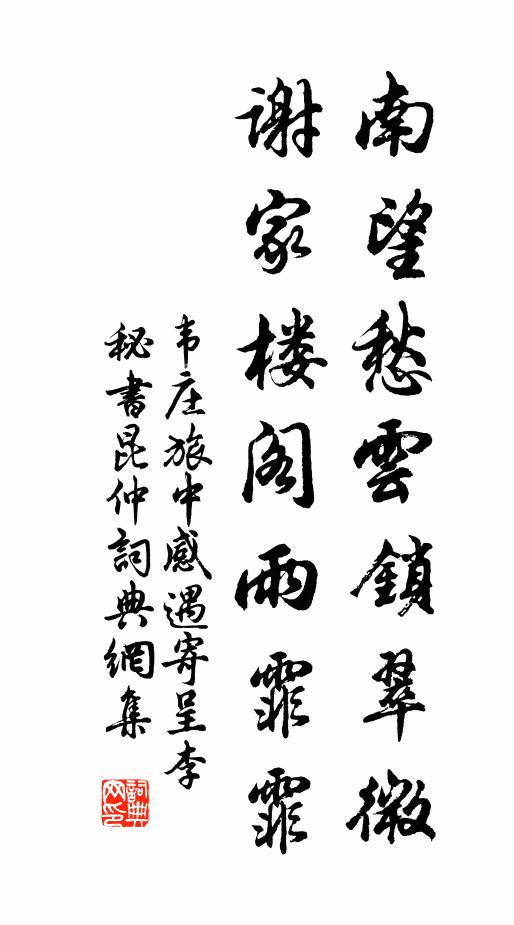 南望愁雲鎖翠微
谢家楼阁雨霏霏
韦庄旅中感遇寄呈李
秘書昆仲詞典網集
詞典
网印